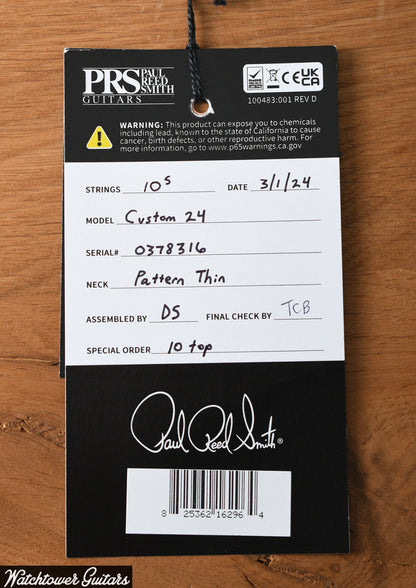 PRS PAUL REED SMITH
GUITARS
UK CA
100483:001 REV D
WARNING: This product can expose you to chemicals
including lead, known to the state of California to cause
cancer, birth defects, or other reproductive harm. For
more information, go to www.p65warnings.ca.gov
STRINGS 10s DATE 3/1/24
MODEL Custom 24
SERIAL# 0378316
NECK Pattern Thin
ASSEMBLED BY DS FINAL CHECK BY TCB
SPECIAL ORDER 10 top
Paul Reed Smith®
8 25362 16296 4
Watchtower Guitars